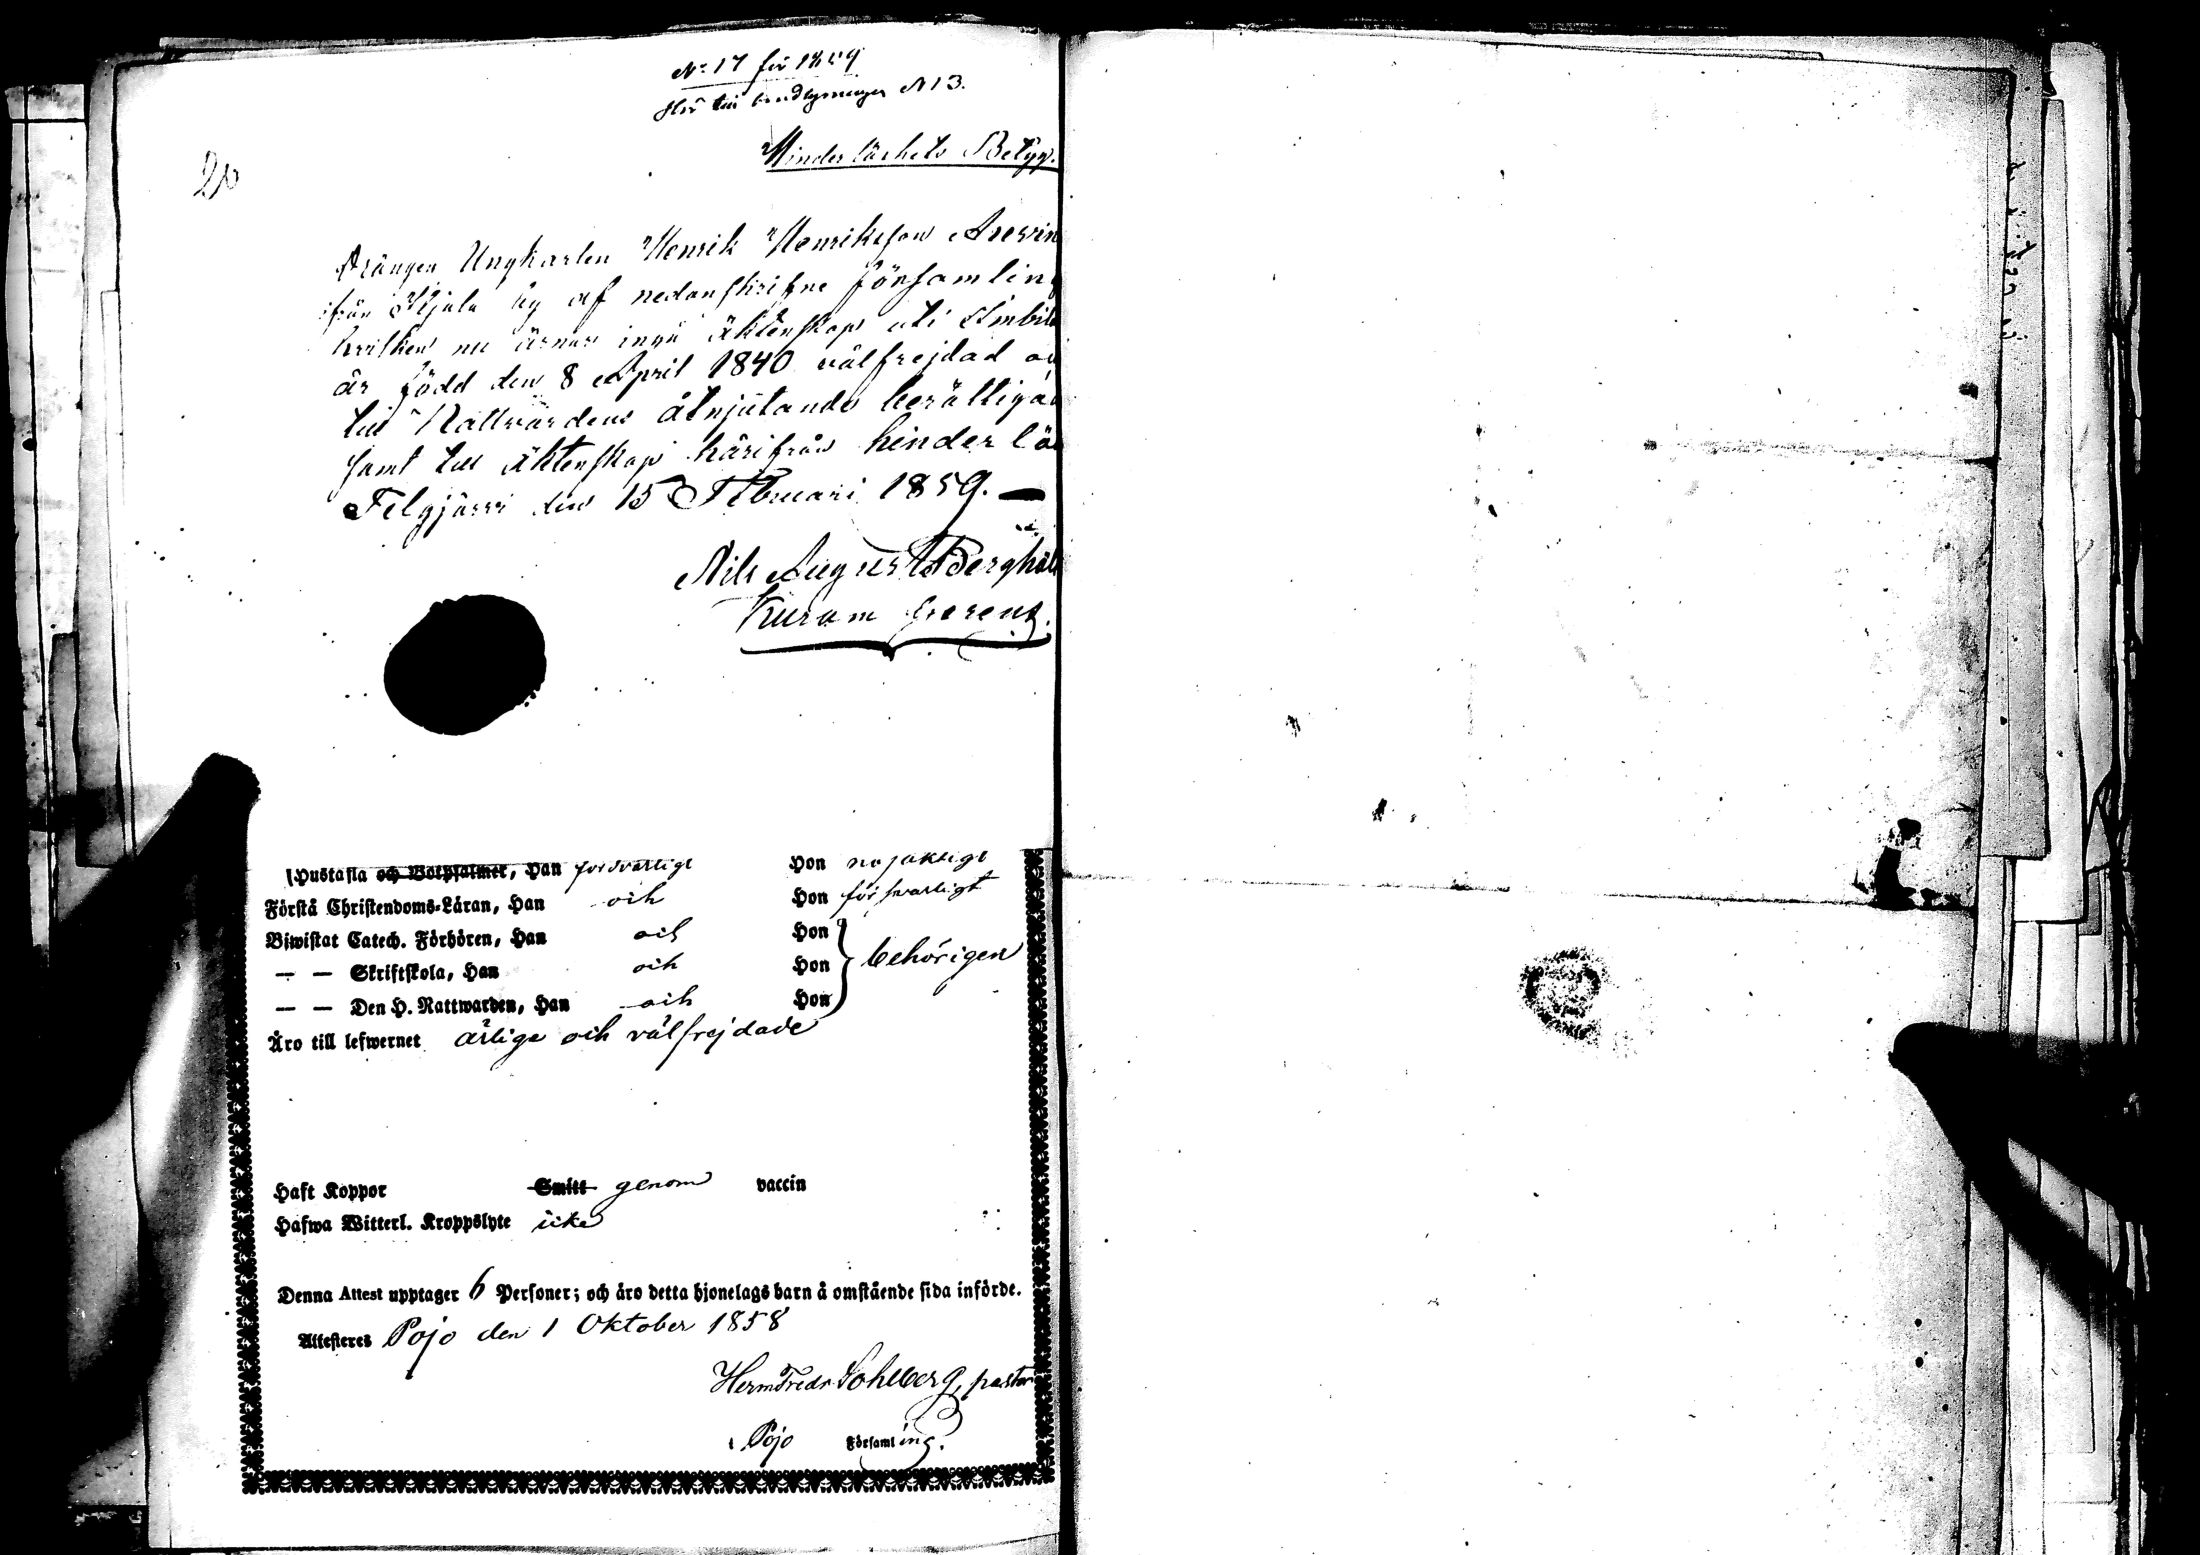 No 17 för 1859
Hör till handlingarna N 13.
Hinderlöshets Betyg.
20
Drängen Ungkarlen Henrik Henriksson
ifrån by af nedanskrifne församling
hvilken nu ärnar ingå äktenskap uti
är född den 8 April 1840 välfrejdad
till Nattvardens åtnjutande berättigad
samt till äktenskap härifrån hinderlös
den 15 Februari 1859. —
Nils August Berghäll
Kuram gerens.
Hustafla och Botpsalmer, Han försvarligt Hon nojaktigt
Förstå Christendoms-Läran, Han och Hon försvarligt
Biwistat Catech. Förhören, Han och Hon
— — Skriftskola, Han och Hon behörigen
— — Den H. Nattwarden, Han och Hon
Äro till lefwernet ärlige och välfrejdade
Haft Koppor Smitt genom vaccin
Hafwa Witterl. Kroppslyte icke
Denna Attest upptager 6 Personer; och äro detta hjonelags barn å omstående sida införde.
Attesteres Pojo den 1 Oktober 1858
Herm Fredr Sohlberg, pastor
i Pojo Församling.